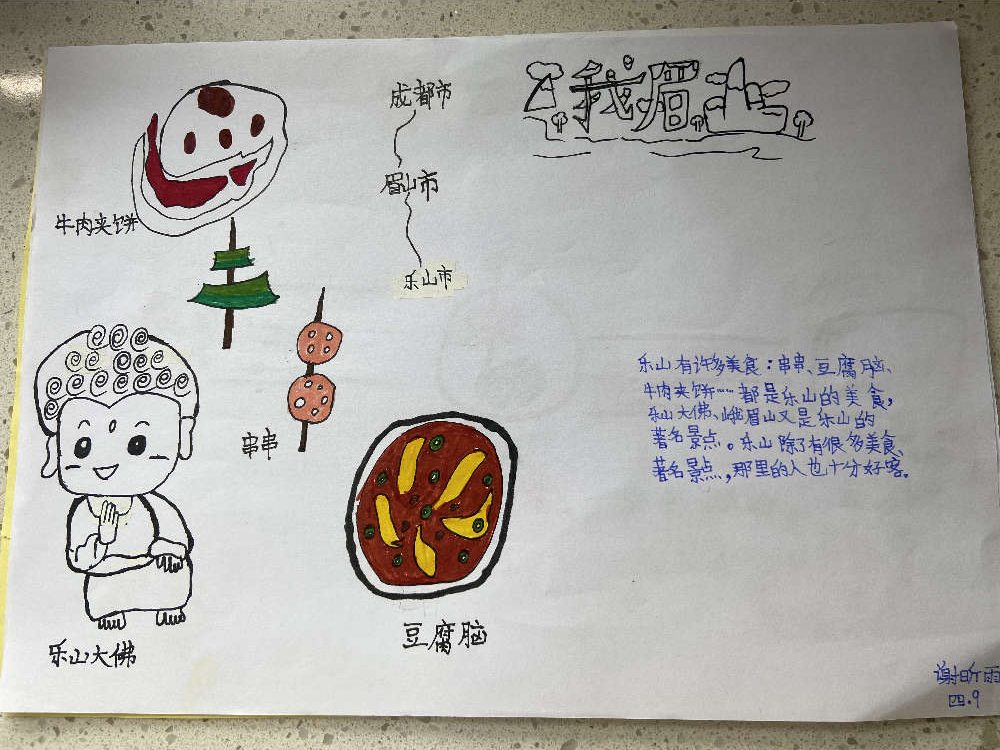 成都市
我眉山
眉山市
牛肉夹饼
乐山市
乐山有许多美食:串串、豆腐脑、
牛肉夹饼……都是乐山的美食,
乐山大佛、峨眉山又是乐山的
著名景点。乐山除了有很多美食、
著名景点,那里的人也十分好客。
串串
豆腐脑
乐山大佛
谢昕雨
四.9